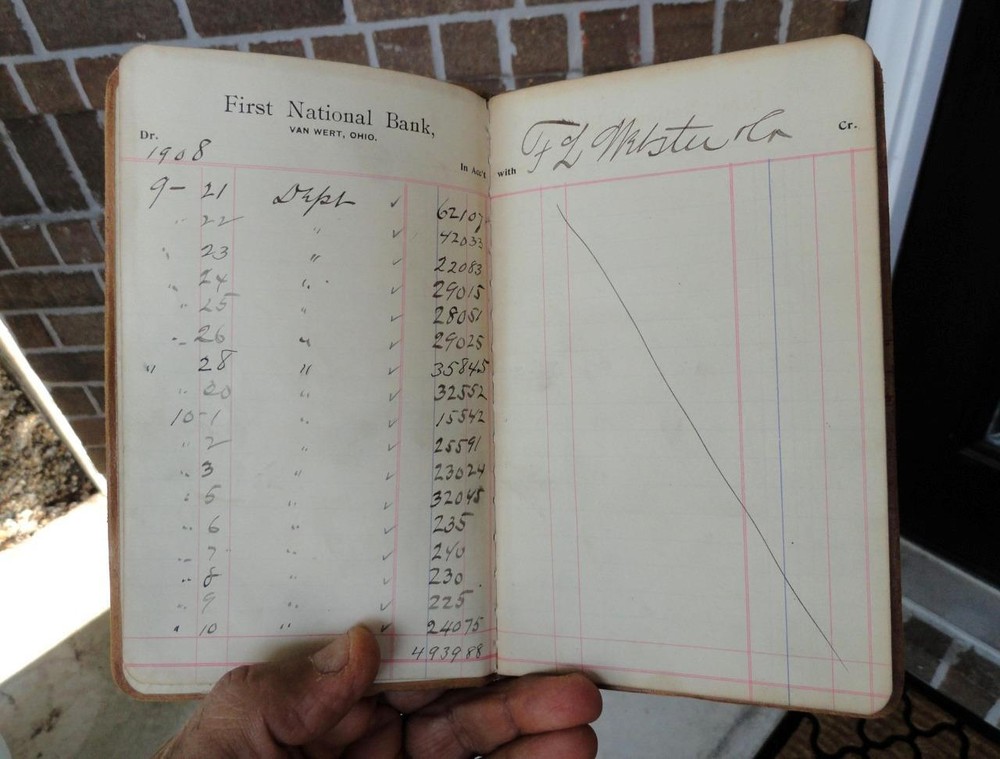 First National Bank,
VAN WERT, OHIO.
Dr.
1908
In Acc't
9- 21 Dept ✓ 62107
" 22 " ✓ 42033
" 23 " ✓ 22083
" 24 " ✓ 29015
" 25 " ✓ 28051
" 26 " ✓ 29025
" 28 " ✓ 35845
" 30 " ✓ 32552
10-1 " ✓ 15542
" 2 " ✓ 25591
" 3 " ✓ 23024
" 5 " ✓ 32045
" 6 " ✓ 235
" 7 " ✓ 240
" 8 " ✓ 230
" 9 " ✓ 225
" 10 " ✓ 24075
493988
with F L Webster & Co Cr.